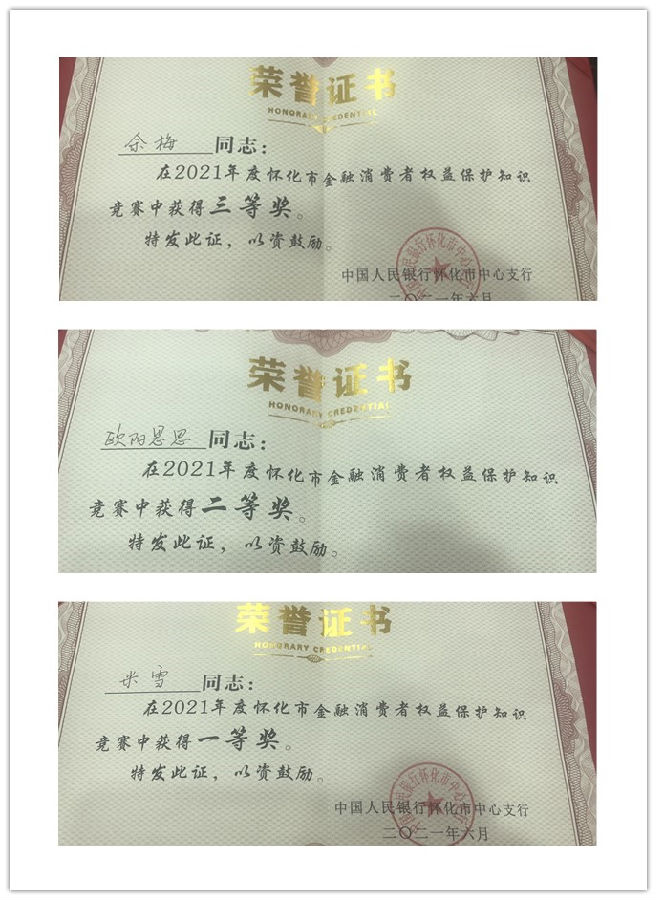 荣誉证书
HONORARY CREDENTIAL
余梅 同志：
在2021年度怀化市金融消费者权益保护知识
竞赛中获得三等奖。
特发此证，以资鼓励。
中国人民银行怀化市中心支行
二〇二一年六月
荣誉证书
HONORARY CREDENTIAL
欧阳思思 同志：
在2021年度怀化市金融消费者权益保护知识
竞赛中获得二等奖。
特发此证，以资鼓励。
荣誉证书
HONORARY CREDENTIAL
米雪 同志：
在2021年度怀化市金融消费者权益保护知识
竞赛中获得一等奖。
特发此证，以资鼓励。
中国人民银行怀化市中心支行
二〇二一年六月